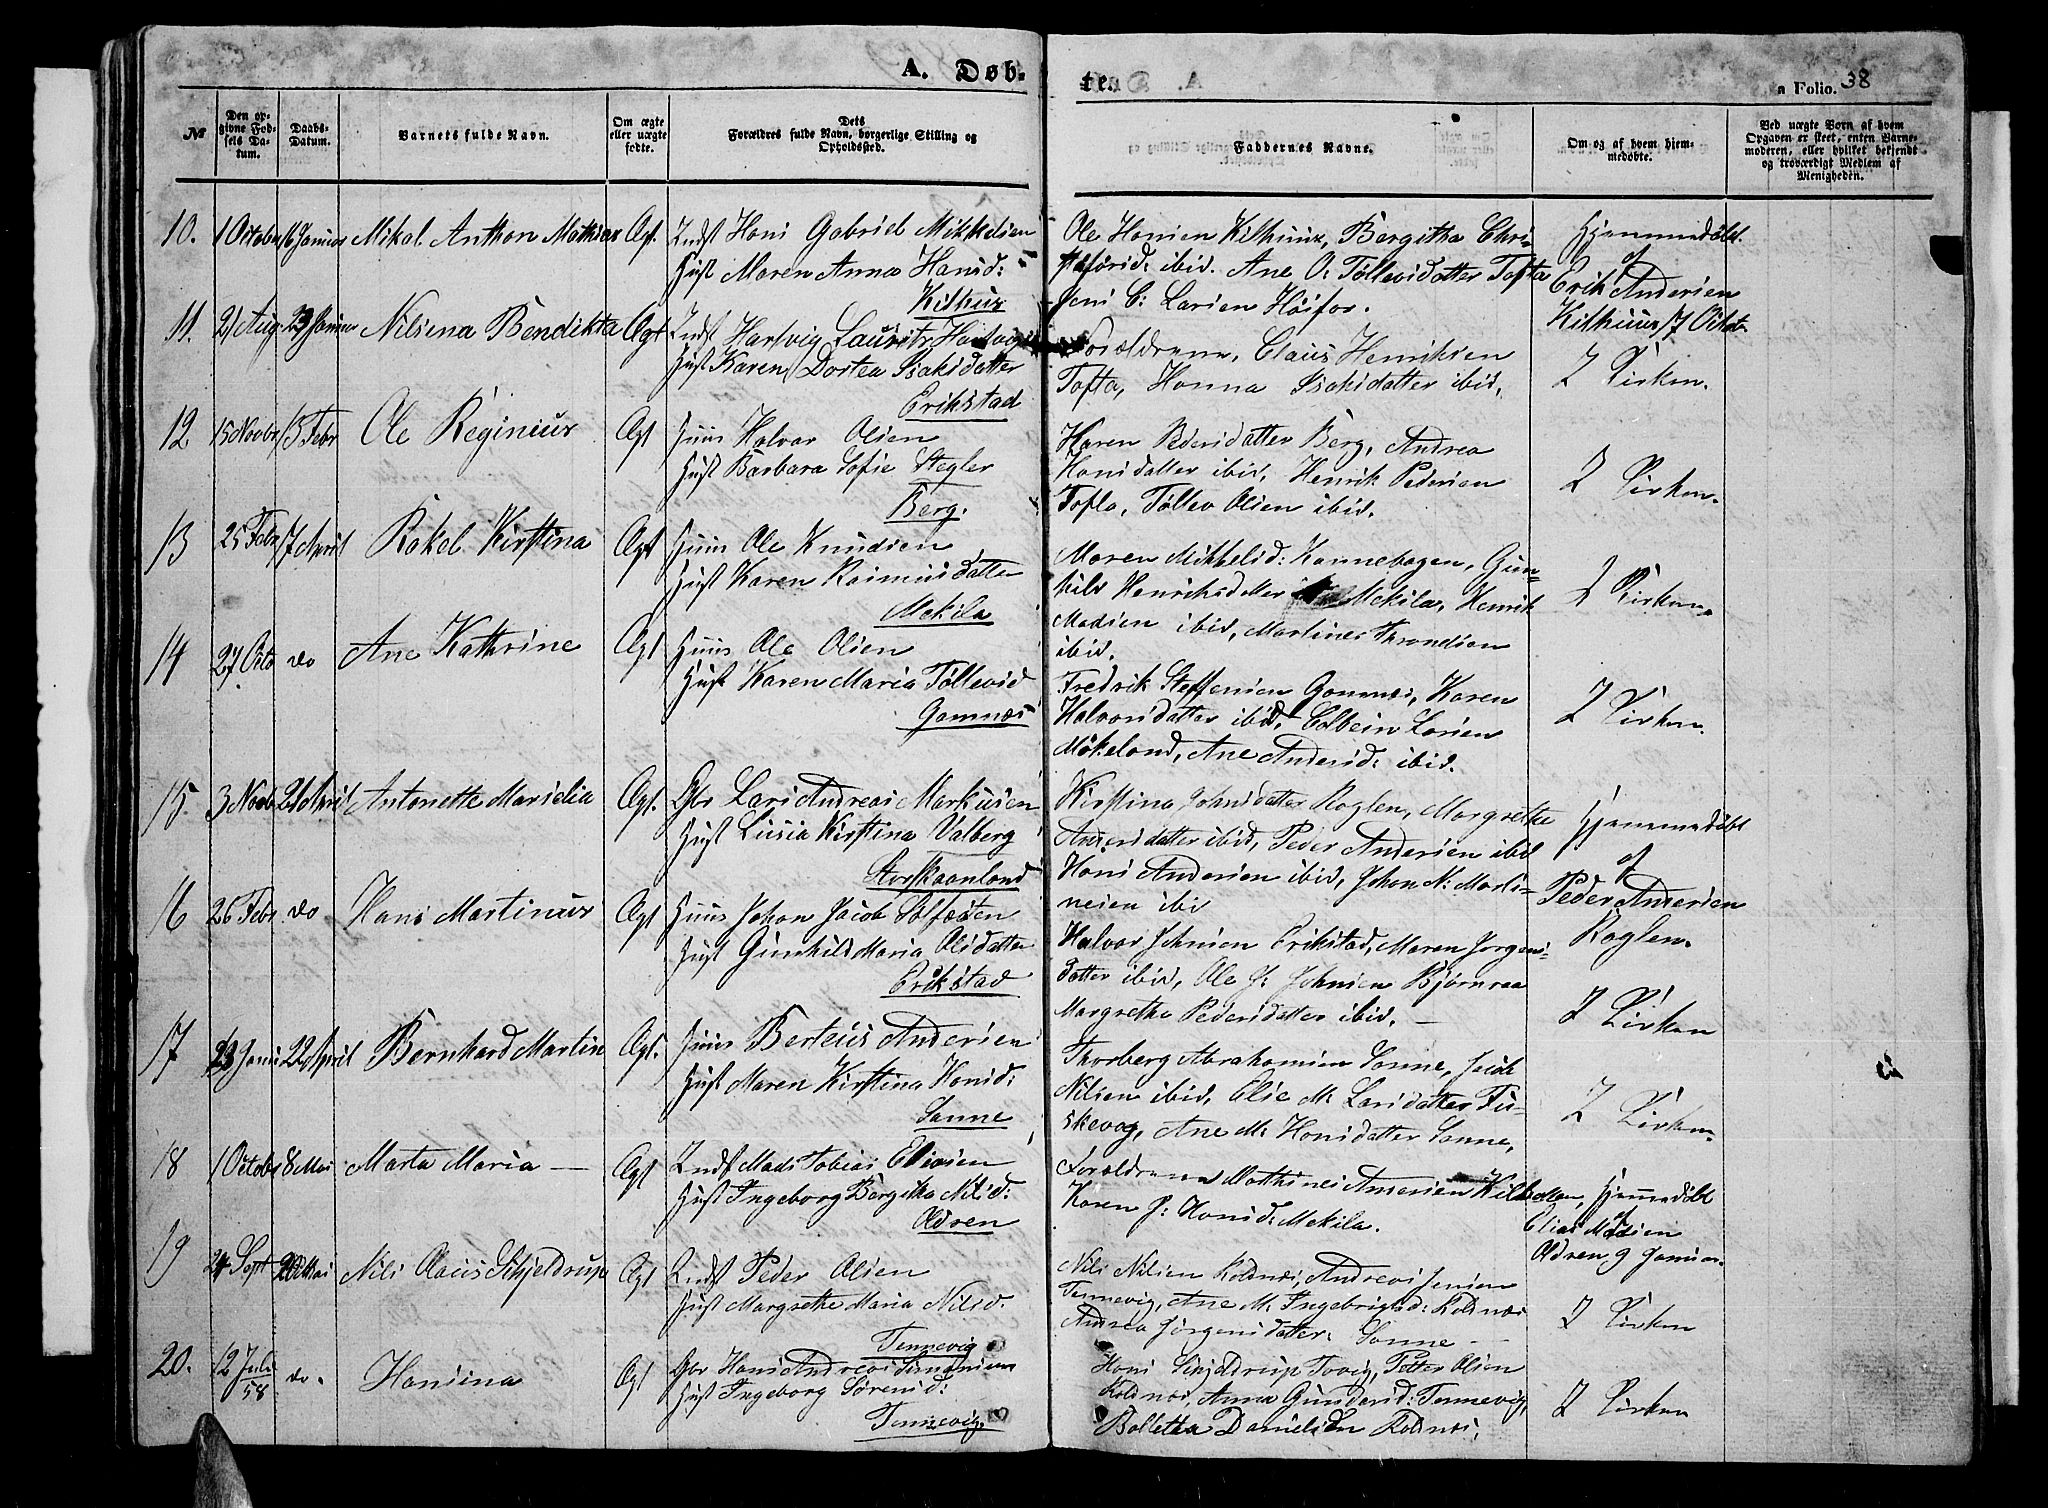 A. Døb-
te.
a Folio. 38
№
Den op-
givne Fød-
sels Da-
tum.
Daabs-
Datum.
Barnets fulde Navn.
Om ægte
eller uægte
fødte.
Dets
Forældres fulde Navn, borgerlige Stilling og
Opholdssted.
Faddernes Navne.
Om og af hvem hjem-
medøbte.
Ved uægte Børn af hvem
Opgaven er skeet, enten Barne-
moderen, eller hvilket bekjendt
og troværdigt Medlem af
Menigheden.
10. 1 Octobr 16 Januar Mikal Anthon Mathias Ægt. Indst Hans Gabriel Mikkelsen
Hust Maren Anna Hansd:
Kilhus
Ole Hansen Kilhuus, Bergitha Chri-
stofersd: ibid. Ane O: Tøllevsdatter Tofta
Jens C: Larsen Høifos.
Hjemmedøbt
af
Erik Andersen
Kilhuus 17 Octob
11. 21 Aug 23 Januar Nilsena Bendikta Ægt Indst Hartvig Lauritz Hartvigs
Hust Karen Dortea Isaksdatter
Erikstad
Forældrene, Claus Henriksen
Tofta, Hanna Isaksdatter ibid.
I Kirken.
12 15 Novbr 15 Febr Ole Reginius Ægt Huus Halvor Olsen
Hust Barbara Sofie Stegler
Berg.
Karen Pedersdatter Berg, Andrea
Hansdatter ibid, Henrik Pedersen
Tofta, Tøllev Olsen ibid.
I Kirken.
13 25 Febr 17 April Rakel Kirstina Ægt Huus Ole Knudsen
Hust Karen Rasmusdatter
Mekila
Maren Mikkelsd: Kannebogen, Gun-
hild Henriksdatter Mekila, Henrik
Madsen ibid, Martines Throndsen
ibid.
I Kirken.
14 27 Octo do Ane Kathrine Ægt Huus Ole Olsen
Hust Karen Maria Tøllevsd
Gamnæs
Fredrik Steffensen Gamnæs, Karen
Halvorsdatter ibid, Colbein Larsen
Møkeland, Ane Andersd: ibid.
I Kirken.
15. 3 Novb 21 April Antonette Marselia Ægt. Gbr Lars Andreas Markusen
Hust Lusia Kirstina Valberg
Storskaanland
Kirstina Johnsdatter Roglen, Margrethe
Andersdatter ibid, Peder Andersen ibid
Hans Andersen ibid, Johan N: Marti-
nesen ibi
Hjemmedøbt
af
Peder Andersen
Roglen.
16 26 Febr do Hans Martinus Ægt Huus Johan Jacob
Hust Gunhild Maria Olsdatter
Erikstad
Halvor Johnsen Erikstad, Maren Jørgens-
datter ibid, Ole J: Johnsen Bjørnraa
Margrethe Pedersdatter ibid. —
I Kirken
17 23 Janu 22 April Bernhard Martin Ægt. Huus Berteus Andersen
Hust Maren Kirstina Hansd:
Sanne
Thorberg Abrahamsen Sanne, Jacob
Nilsen ibid, Elie M: Larsdatter Fu-
skevog, Ane M: Hansdatter Sanne,
I Kirken.
18 1 Octobr 8 Mai Marta Maria — Ægt Indst Mads Tobias Eliasen
Hust Ingeborg Bergitha Nilsd:
Oldren
Forældrene Mathines Andersen
Karen J: Hansd: Mekila.
Hjemmedøbt
af
Elias Madsen
Oldren 9 Januar.
19 24 Sept 20 Mai Nils Olaus Schjeldrup Ægt Indst Peder Olsen
Hust Margrethe Maria Nilsd.
Tennevig
Nils Nilsen Roldnæs, Andreas Jensen
Tennevig, Ane M: Ingebrigtsd: Roldnæs
Andrea Jørgensdatter: Sanne —
I Kirken
20. 12 Juli 58 do. Hansina Ægt Gbr Hans Andreas Simonsen
Hust Ingeborg Sørensd:
Tennevig.
Hans Schjeldrup Trovig, Petter Olsen
Roldnæs, Anna Gundersd: Tennevig,
Bolletha Danielsden Roldnæs,
I Kirken